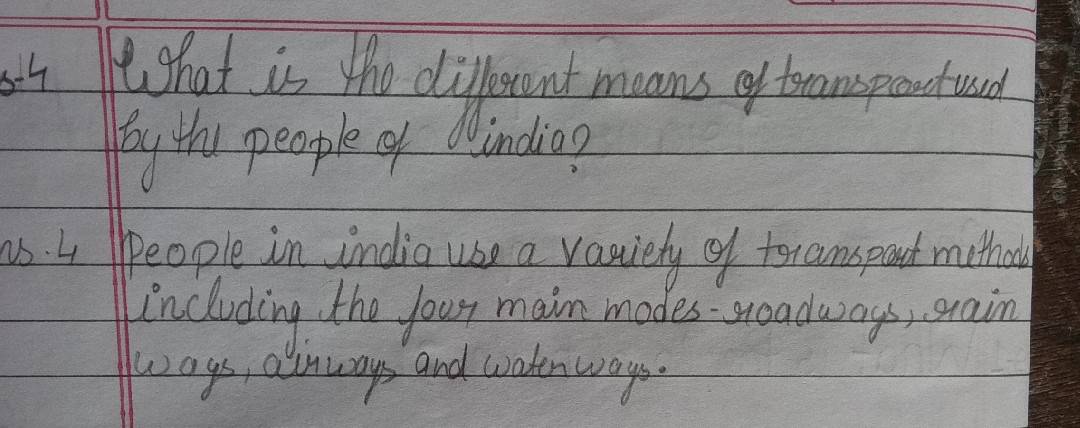 s-4 What is the different means of transport used
by the people of india?
ns.4 People in india use a variety of transport methods
including the four main modes-roadways, rain
ways, airways and waterways.